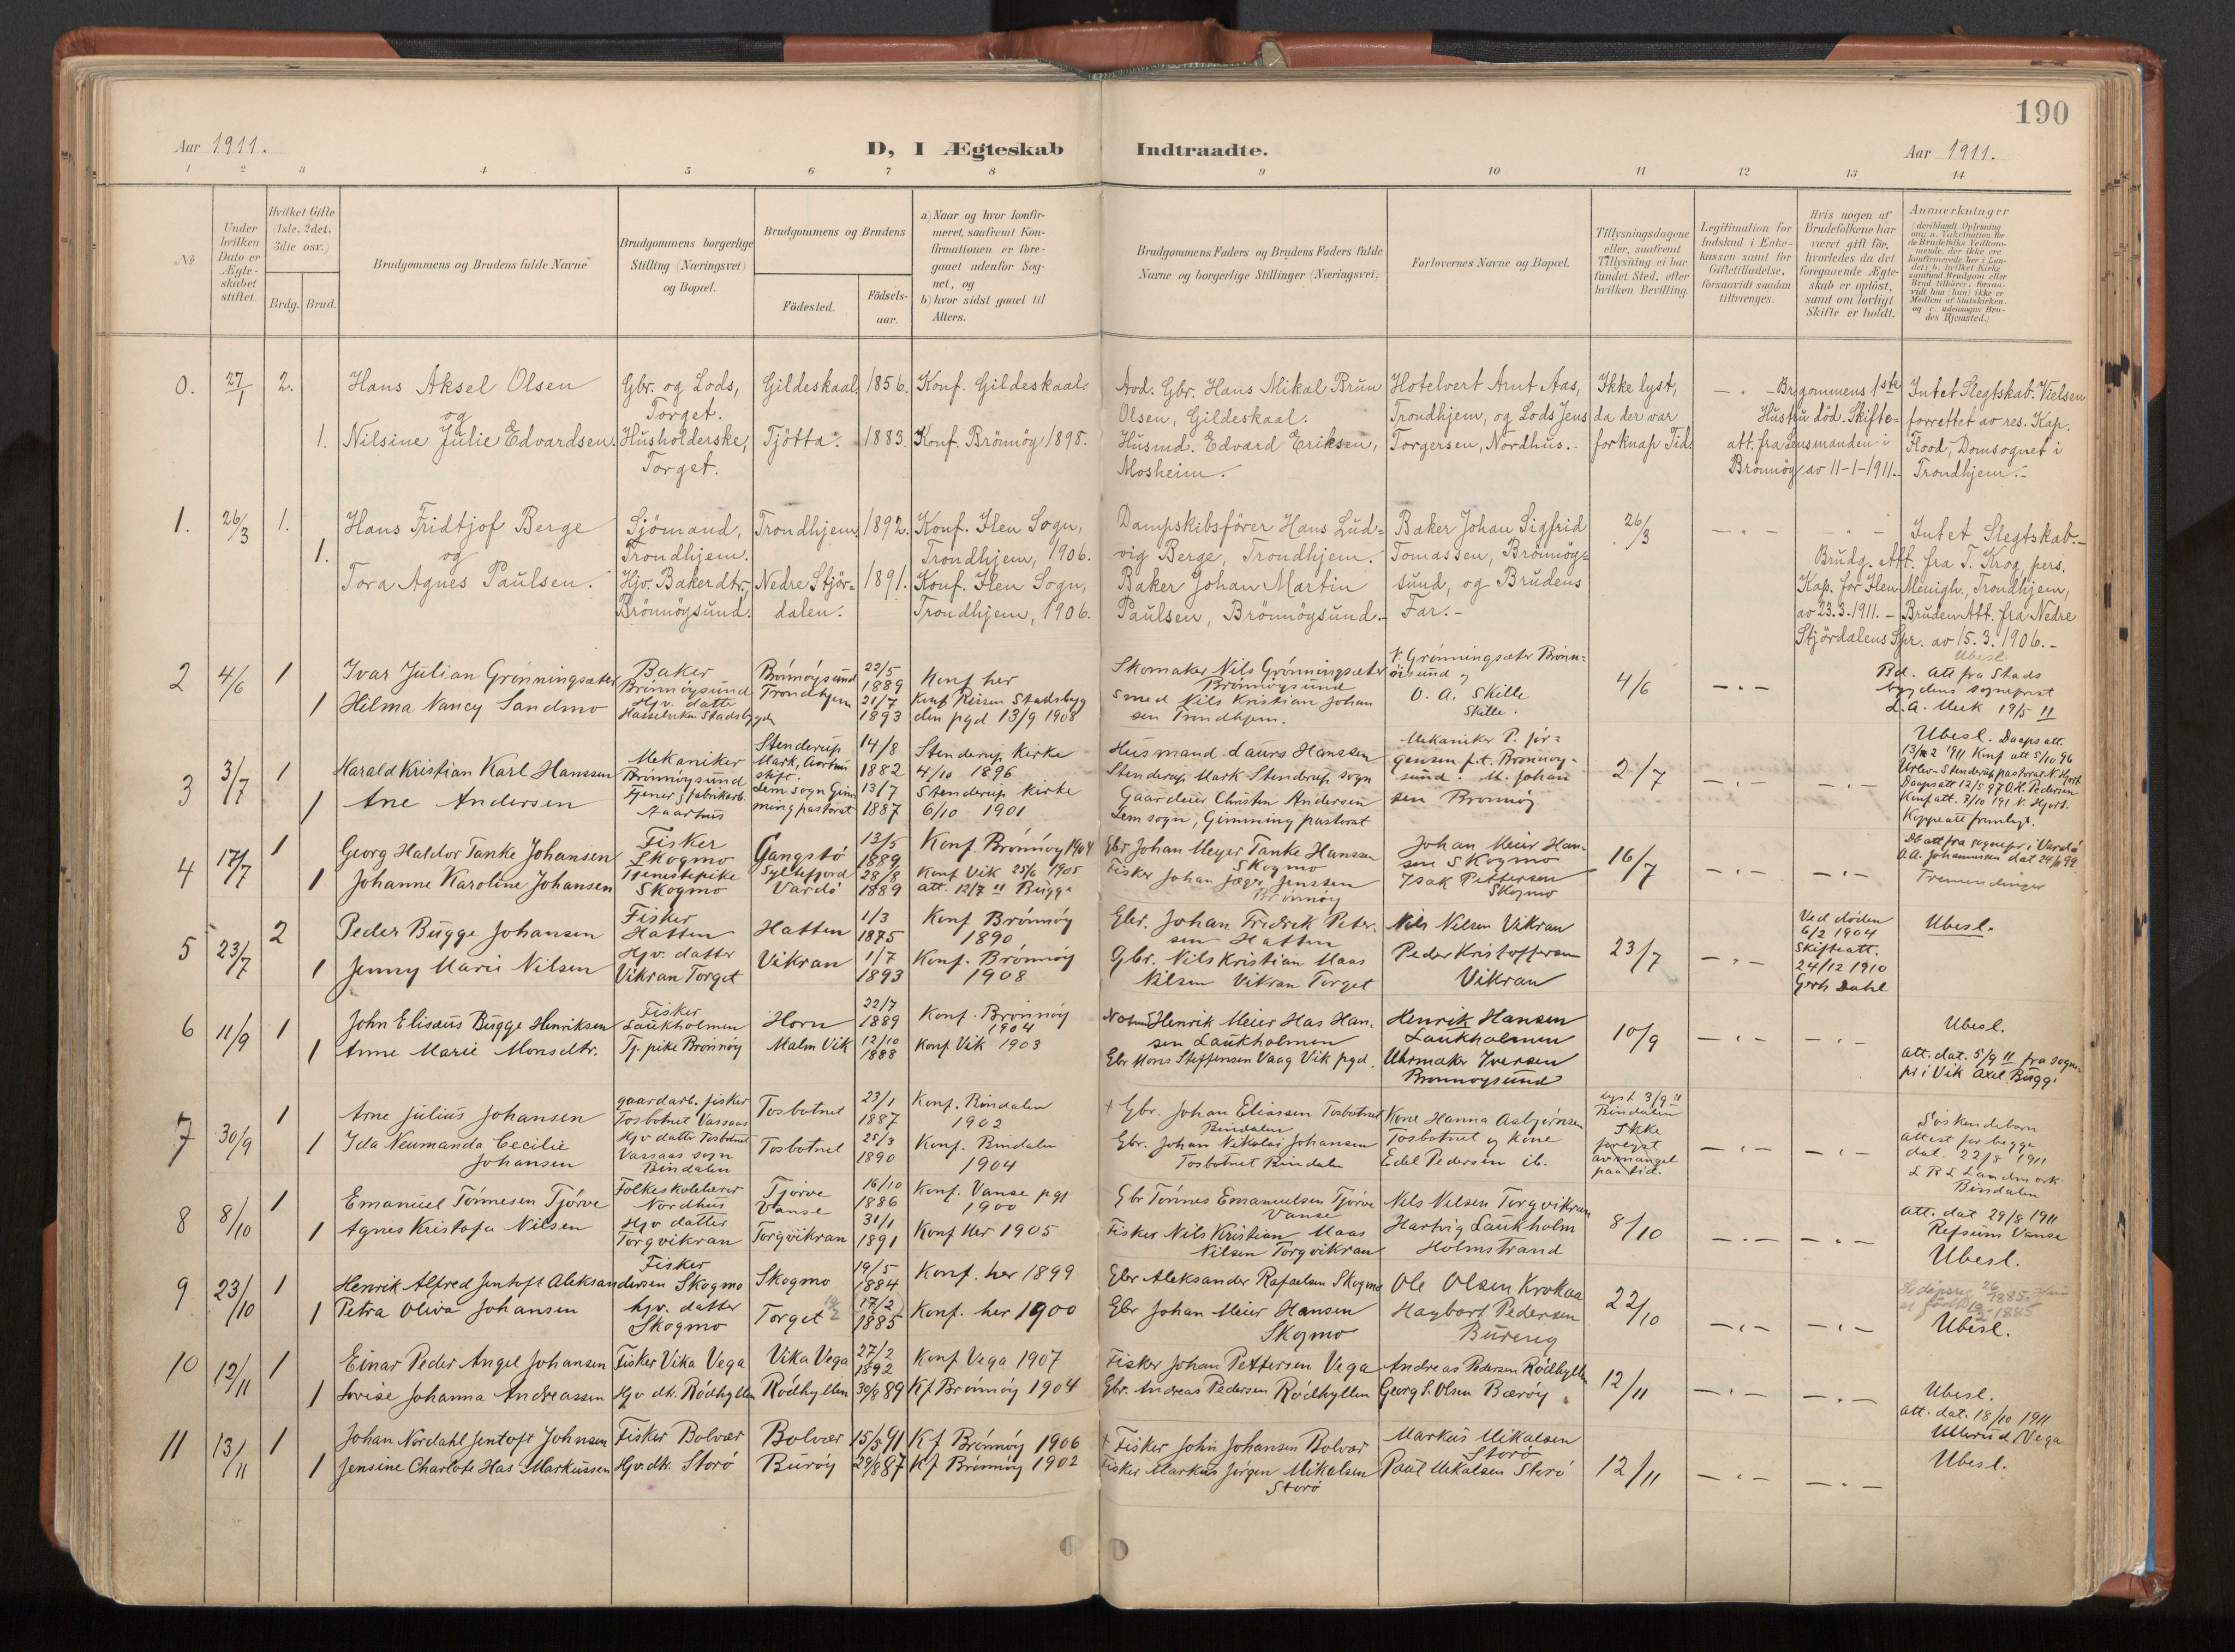 190
Aar 1911.
D, I Ægteskab Indtraadte.
Aar 1911.
1 2 3 4 5 6 7 8 9 10 11 12 13 14
No
Under hvilken Dato er Ægteskabet stiftet.
Hvilket Gifte (1ste, 2det, 3die osv.)
Brdg. Brud.
Brudgommens og Brudens fulde Navne
Brudgommens borgerlige Stilling (Næringsvei) og Bopæl.
Brudgommens og Brudens
Födested.
Födsels-aar.
a) Naar og hvor konfirmeret, saafremt Konfirmationen er foregaaet udenfor Sognet, og
b) hvor sidst gaaet til Alters.
Brudgommens Faders og Brudens Faders fulde Navne og borgerlige Stillinger (Næringsvei)
Forlovernes Navne og Bopæl.
Tillysningsdagene eller, saafremt Tillysning ei har fundet Sted, efter hvilken Bevilling.
Legitimation for Indskud i Enkekassen samt for Giftetilladelse, forsaavidt saadan tiltrænges.
Hvis nogen af Brudefolkene har været gift før, hvorledes da det foregaaende Ægteskab er oplöst, samt om lovligt Skifte er holdt.
Anmerkninger (deriblandt Oplysning om: a. Vakcination for de Brudefolks Vedkommende, der ikke ere konfirmerede her i Landet; b. hvilket Kirkesamfund Brudgom eller Brud tilhörer, forsaavidt han (hun) ikke er Medlem af Statskirken. og c. udensogns Brudes Hjemsted.)
0. 27/1 2. Hans Aksel Olsen
og
1. Nilsine Julie Edvardsen.
Gbr. og Lods,
Torget.
Husholderske,
Torget.
Gildeskaal. 1856. Konf. Gildeskaal.
Tjötta. 1883. Konf. Brönnöy 1898.
Avd. Gbr. Hans Mikal Brun
Olsen, Gildeskaal.
Husmd. Edvard Eriksen,
Mosheim.
Hotelvert Arnt Aas,
Trondhjem, og Lods Jens
Torgersen, Nordhus.
Ikke lyst,
da der var
for knap Tid.
Brgommens 1ste
Hustru död. Skifte-
att. fra Lensmanden i
Brönnöy av 11-1-1911.
Intet Slegtskab. Vielsen
forrettet av res. Kap.
Flood, Domsognet i
Trondhjem.
1. 26/3 1. Hans Fridtjof Berge
1. og
Tora Agnes Paulsen.
Sjömand,
Trondhjem.
Hjv. Bakerdtr.,
Brönnöysund.
Trondhjem. 1892. Konf. Ilen Sogn,
Trondhjem, 1906.
Nedre Stjör-
dalen. 1891. Konf. Ilen Sogn,
Trondhjem, 1906.
Dampskibsförer Hans Lud-
vig Berge, Trondhjem.
Baker Johan Martin
Paulsen, Brönnöysund.
Baker Johan Sigfrid
Tomassen, Brönnöy-
sund, og Brudens
Far.
26/3
Intet Slegtskab.
Brudg. Att. fra T. Krog, pers.
Kap. for Ilen Menigh., Trondhjem,
av 23.3.1911. - Bruden Att. fra Nedre
Stjördalens Spr. av 15.3.1906.
2 4/6 1 Ivar Julian Grönningsæter
1 Hilma Nancy Sandmo
Baker
Brönnöysund
Hjv. datter
Brönnöysund 22/5 1889 Konf her
Trondhjem 21/7 1893 Konf Rissen Stadsbyg
den pgd 13/9 1908
Skomaker Nils Grönningsæter
Brönnöysund
Smed Nils Kristian Johan
sen Trondhjem.
N. Grönningsæter Brönn-
öisund og
O. A. Skille
Skille.
4/6
Ubesl.
Bd. att fra Stads
bygdens sogneprest
19/5 11
3 3/7 1 Harald Kristian Karl Hanssen
1 Ane Andersen
Mekaniker
Brönnöysund
Aarhus
Stenderup
Mark, Aarhus
stift. 14/8 1882
Stenderup Kirke
4/10 1896
Lem sogn Gim
ming pastorat 13/7 1887
Stenderup kirke
6/10 1901
Husmand Laurs Hanssen
Stenderup Mark Stenderup sogn
Gaardeier Christen Andersen
Lem sogn, Gimming pastorat
Mekaniker P. Jör-
gensen p.t. Brönnöy-
sund. M. Johan
sen Brönnöy
2/7
Ubesl. Daapsatt.
Konf att 5/10 96
Daapsatt 12/5 97 O.K. Pedersen
Koppeatt fremlagt.
4 17/7 1 Georg Haldor Tanke Johansen
1 Johanne Karoline Johansen
Fisker
Skogmo
Tjenestepike
Skogmo
Gangstö 13/5 1889 Konf. Brönnöy 1904
Syltefjord
Vardö 28/8 1889 Konf Vik 25/6 1905
att. 12/7 11 Bugge
Gbr Johan Meyer Tanke Hanssen
Skogmo
Fisker Johan Jæger Jenssen
Brönnöy
Johan Meier Han-
sen Skogmo
Isak Pettersen
Skogmo
16/7
Db att fra sognepr i Vardö
O.A. Johannesen dat 24/1 99
Tremendinger
5 23/7 2 Peder Bugge Johansen
1 Jenny Marie Nilsen
Fisker
Hatten
Hjv. datter
Vikran Torget
Hatten 1/3 1875 Konf Brönnöy
1890
Vikran 1/7 1893 Konf. Brönnöy
1908
Gbr. Johan Fredrik Peter-
sen Hatten
Gbr. Nils Kristian Maas
Nilsen Vikran Torget
Nils Nilsen Vikran
Peder Kristoffersen
Vikran
23/7
Ved döden
6/2 1904
Skifteatt.
24/12 1910
Grth Dahl
Ubesl.
6 11/9 1 John Elisæus Bugge Henriksen
1 Anne Marie Monsdtr.
Fisker
Laukholmen
Tj. pike Brönnöy
Horn 22/7 1889 Konf. Brönnöy
1904
Malm Vik 12/10 1888 Konf Vik 1903
Henrik Meier Has Han-
sen Laukholmen
Gbr Mons Steffensen Vaag Vik pgd.
Henrik Hansen
Laukholmen
Uhrmaker Iversen
Brönnöysund
10/9
Ubesl.
att. dat. 5/9 11 fra sogne-
pr i Vik Axel Bugge
7 30/9 1 Arne Julius Johansen
1 Ida Neumanda Cecilie
Johansen
gaardarb. fisker
Tosbotnet Vassaas
Hjv datter Tosbotnet
Vassaas sogn
Bindalen
Tosbotnet 23/1 1887 Konf. Bindalen
1902
Tosbotnet 25/3 1890 Konf. Bindalen
1904
+ Gbr. Johan Eliassen Tosbotnet
Bindalen
Gbr. Johan Nikolai Johansen
Tosbotnet Bindalen
Kone Hanna Asbjørnsen
Tosbotnet og kone
Edel Pedersen ib.
Lyst 3/9 11
Bindalen
Ikke
forlyst
av mangel
paa tid.
Söskendebarn
attest for begge
dat. 22/8 1911
Bindalen
8 8/10 1 Emanuel Tönnesen Tjörve
1 Agnes Kristofa Nilsen
Folkeskolelærer
Nordhus
Hjv datter
Torgvikran
Tjörve
Vanse 16/10 1886 Konf. Vanse pgd
1900
Torgvikran 31/1 1891 Konf her 1905
Gbr Tönnes Emanuelsen Tjörve
Vanse
Fisker Nils Kristian Maas
Nilsen Torgvikran
Nils Nilsen Torgvikran
Hartvig Laukholm
Holmstrand
8/10
att. dat 29/8 1911
Refsum Vanse
Ubesl.
9 23/10 1 Henrik Alfred Jentoft Aleksandersen
1 Petra Oliva Johansen
Fisker
Skogmo
hjv. datter
Skogmo
Skogmo 19/5 1884 Konf. her 1899
Torget 17/2 1885 Konf. her 1900
Gbr Aleksander Rafaelsen Skogmo
Gbr Johan Meier Hansen
Skogmo
Ole Olsen Krokaa
Haybart Pedersen
Bureng
22/10
Ubesl.
10 12/11 1 Einar Peder Angel Johansen
1 Lovise Johanna Andreassen
Fisker Vika Vega
Hjv dtr. Rödhyllen
Vika Vega 27/2 1892 Konf Vega 1907
Rödhyllen 30/8 89 Kf Brönnöy 1904
Fisker Johan Pettersen Vega
Gbr. Andreas Pedersen Rödhyllen
Andreas Pedersen Rödhyllen
Georg S. Olsen Bæröy
12/11
Ubesl.
att. dat. 18/10 1911
Ullerud Vega
11 13/11 1 Johan Nordahl Jentoft Johnsen
1 Jensine Charlote Has Markussen
Fisker Bolvær
Hjv. dtr. Storö
Bolvær 15/5 91 Kf Brönnöy 1906
Buröy 29/8 87 Kf Brönnöy 1902
+ Fisker John Johansen Bolvær
Fisker Markus Jörgen Mikalsen
Storö
Markus Mikalsen
Storö
Paul Mikalsen Storö
12/11
Ubesl.